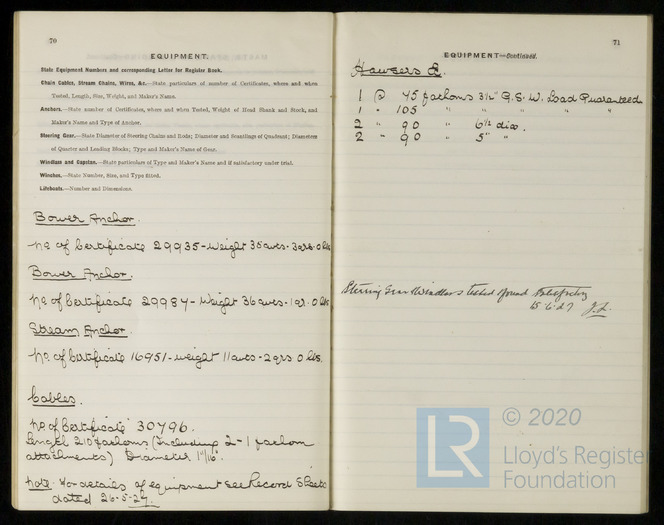 70
EQUIPMENT.
State Equipment Numbers and corresponding Letter for Register Book.
Chain Cables, Stream Chains, Wires, &c.—State particulars of number of Certificates, where and when
Tested, Length, Size, Weight, and Maker's Name.
Anchors.—State number of Certificates, where and when Tested, Weight of Head Shank and Stock, and
Maker's Name and Type of Anchor.
Steering Gear.—State Diameter of Steering Chains and Rods; Diameter and Scantlings of Quadrant; Diameters
of Quarter and Leading Blocks; Type and Maker's Name of Gear.
Windlass and Capstan.—State particulars of Type and Maker's Name and if satisfactory under trial.
Winches.—State Number, Size, and Type fitted.
Lifeboats.—Number and Dimensions.
Bower Anchor.
No. of Certificate 29935 - Weight 35 cwts - 3 qrs - 0 lbs
Bower Anchor.
No. of Certificate 29984 - Weight 36 cwts - 1 qr. 0 lbs
Stream Anchor.
No. of Certificate 16951 - weight 11 cwts - 2 qrs 0 lbs.
Cables.
No. of Certificate 30796.
Length 210 fathoms (Including 2 - 1 fathom
attachments) Diameter 1 11/16".
Note. For details of equipment see Record Sheets
dated 26-5-27.
71
EQUIPMENT—Continued.
Hawsers &.
1 @ 75 fathoms 3½" G.S.W. Load Guaranteed
1 " 105 " " " " "
2 " 90 " 6½ dia.
2 " 90 " 5" "
Steering Gear & Windlass tested & found satisfactory
© 2020
LR
Lloyd's Register
Foundation